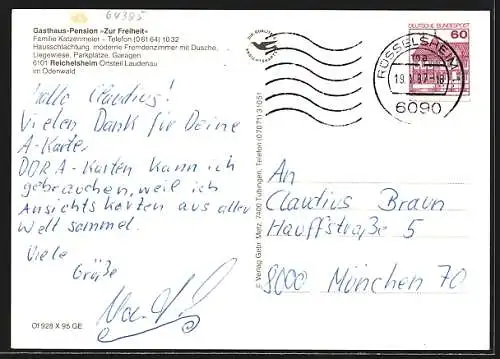 64385
Gasthaus-Pension »Zur Freiheit«
Familie Katzenmeier – Telefon (06164) 1032
Hausschlachtung, moderne Fremdenzimmer mit Dusche,
Liegewiese, Parkplätze, Garagen
6101 Reichelsheim Ortsteil Laudenau
im Odenwald
Hallo Claudius!
Vielen Dank für Deine
A-Karte.
DDR A-Karten kann ich
gebrauchen, weil ich
Ansichtskarten aus aller
Welt sammel.
Viele
Grüße
Of 928 X 95 GE
© Verlag Gebr. Metz, 7400 Tübingen, Telefon (07071) 31051
DEUTSCHE BUNDESPOST
60
RÜSSELSHEIM
6090
An
Claudius Braun
Hauffstraße 5
8000 München 70